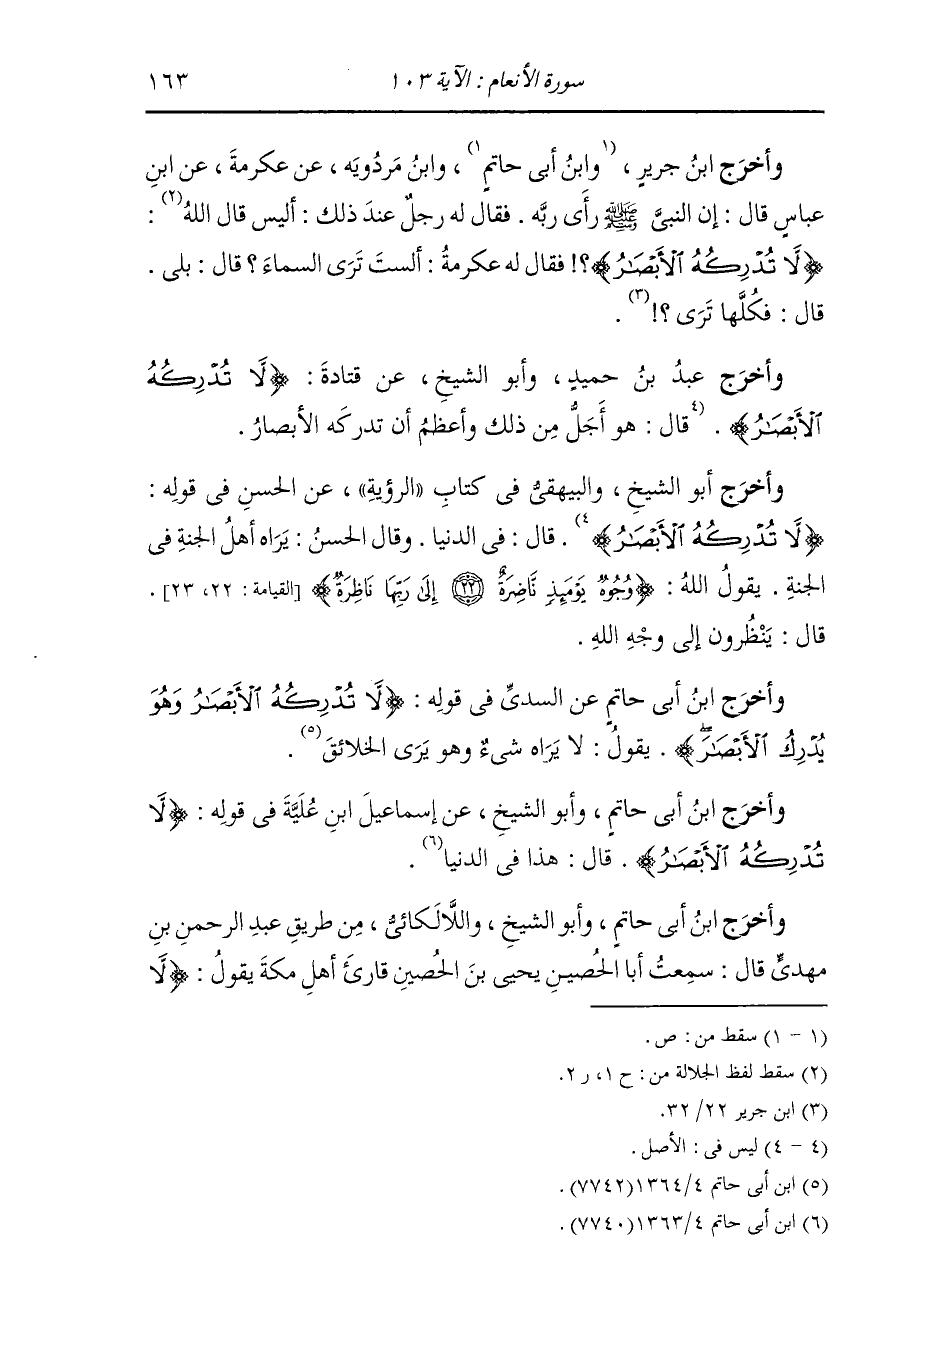 سورة الأنعام : الآية ١٠٣ ١٦٣
وأخرَج ابنُ جريرٍ ، (١وابنُ أبى حاتمٍ١) ، وابنُ مَردُويَه ، عن عكرمةَ ، عن ابنِ
عباسٍ قال : إن النبىَّ ﷺ رأَى ربَّه . فقال له رجلٌ عندَ ذلك : أليس قال اللهُ(٢) :
﴿لَّا تُدْرِكُهُ ٱلْأَبْصَـٰرُ﴾؟! فقال له عكرمةُ : ألستَ تَرَى السماءَ ؟ قال : بلى .
قال : فكُلَّها تَرَى ؟!(٣) .
وأخرَج عبدُ بنُ حميدٍ ، وأبو الشيخِ ، عن قتادةَ : ﴿لَّا تُدْرِكُهُ
ٱلْأَبْصَـٰرُ﴾ . (٤قال : هو أَجَلُّ مِن ذلك وأعظمُ أن تدركَه الأبصارُ .
وأخرَج أبو الشيخِ ، والبيهقىُّ فى كتابِ «الرؤيةِ» ، عن الحسنِ فى قولِه :
﴿لَّا تُدْرِكُهُ ٱلْأَبْصَـٰرُ﴾٤) . قال : فى الدنيا . وقال الحسنُ : يَرَاه أهلُ الجنةِ فى
الجنةِ . يقولُ اللهُ : ﴿وُجُوهٌ يَوْمَئِذٍ نَّاضِرَةٌ ﴿٢٢﴾ إِلَىٰ رَبِّهَا نَاظِرَةٌ﴾ [القيامة : ٢٢، ٢٣] .
قال : يَنْظُرون إلى وجْهِ اللهِ .
وأخرَج ابنُ أبى حاتمٍ عن السدىِّ فى قولِه : ﴿لَّا تُدْرِكُهُ ٱلْأَبْصَـٰرُ وَهُوَ
يُدْرِكُ ٱلْأَبْصَـٰرَۖ﴾ . يقولُ : لا يَرَاه شىءٌ وهو يَرَى الخلائقَ(٥) .
وأخرَج ابنُ أبى حاتمٍ ، وأبو الشيخِ ، عن إسماعيلَ ابنِ عُلَيَّةَ فى قولِه : ﴿لَّا
تُدْرِكُهُ ٱلْأَبْصَـٰرُ﴾ . قال : هذا فى الدنيا(٦) .
وأخرَج ابنُ أبى حاتمٍ ، وأبو الشيخِ ، واللَّالَكائىُّ ، مِن طريقِ عبدِ الرحمنِ بنِ
مهدىٍّ قال : سمِعتُ أبا الحُصينِ يحيى بنَ الحُصينِ قارئَ أهلِ مكةَ يقولُ : ﴿لَّا
(١ - ١) سقط من : ص .
(٢) سقط لفظ الجلالة من : ح ١، ر ٢.
(٣) ابن جرير ٢٢/ ٣٢.
(٤ - ٤) ليس فى : الأصل .
(٥) ابن أبى حاتم ١٣٦٤/٤(٧٧٤٢) .
(٦) ابن أبى حاتم ١٣٦٣/٤(٧٧٤٠) .